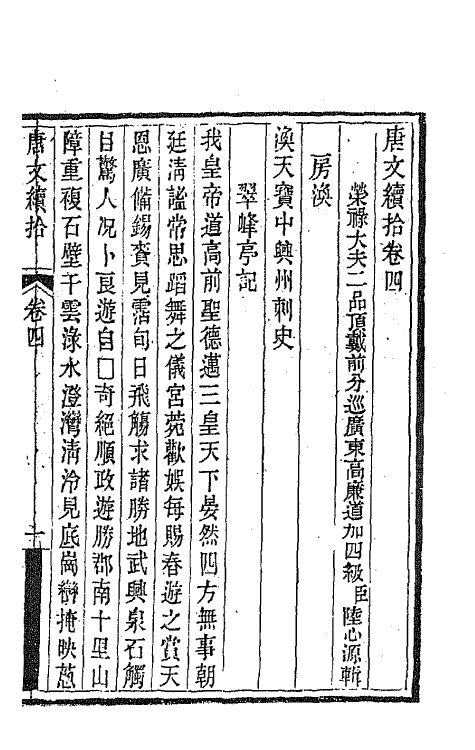 唐文續拾卷四
榮祿大夫二品頂戴前分巡廣東高廉道加四級臣陸心源輯
房渙
渙天寶中興州刺史
翠峰亭記
我皇帝道高前聖德邁三皇天下晏然四方無事朝
廷淸謐常思蹈舞之儀宮苑歡娛每賜春遊之賞天
恩廣備錫賚見霑旬日飛觴求諸勝地武興泉石觸
目驚人况卜良遊自□奇絕順政遊勝郡南十里山
障重複石壁干雲淥水澄灣淸泠見底崗巒掩映蔥
唐文續拾 卷四 一